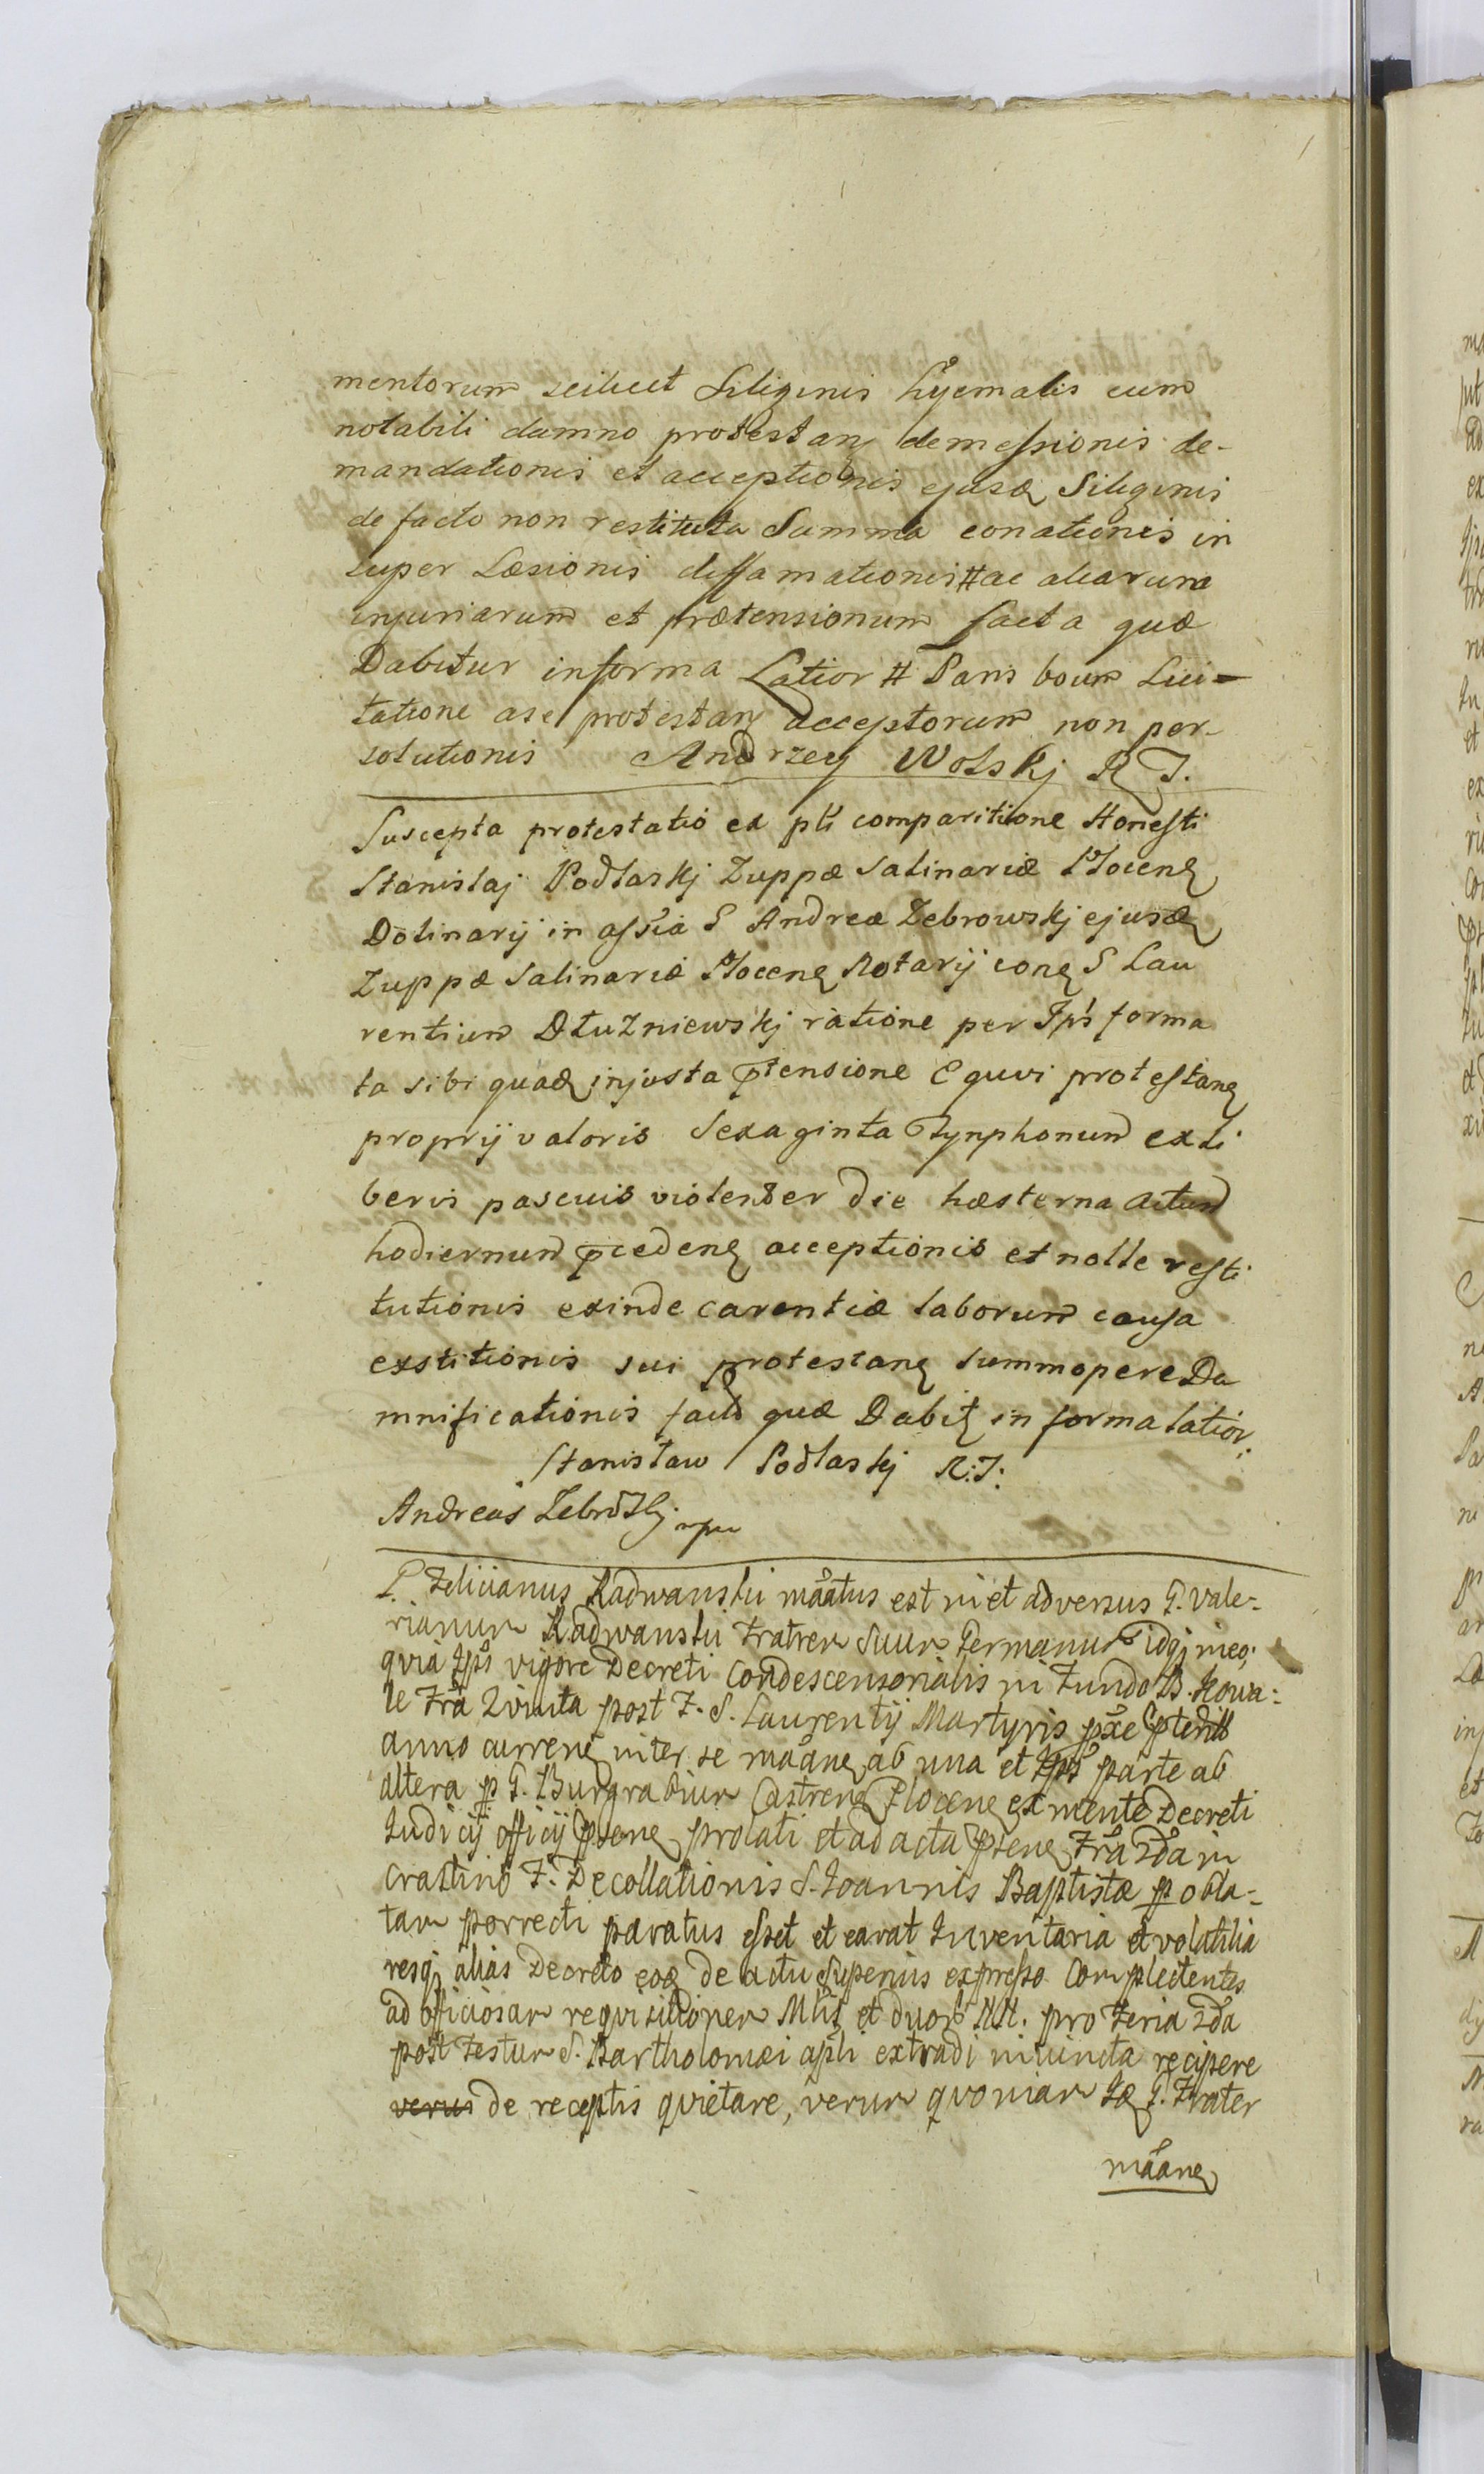 mentorum scilicet Siliginis hyemalis cum
notabili damno protestan demessionis de-
mandationis et acceptionis ejusd Siliginis
de facto non restituta Summa conationis in
super Læsionis diffamationis # ac aliarum
injuriarum et prætensionum facta quæ
Dabitur in forma Latior # Paris boum Lici=
tatione a se protestan acceptorum non per-
solutionis Andrzey Wolskj R J.
Suscepta protestatio ex pti comparitione Honesti
Stanislaj Podlaskj Zuppæ Salinariæ Plocen
Dolinarij in assia G Andreæ Zebrowskj ejusd
Zuppæ Salinariæ Plocen Notarij con G Lau
rentium Dłuzniewskj ratione per Ips forma
ta sibi quad injusta ptensione Equvi protestan
proprij valoris Sexaginta Tynphonum ex li
beris pascuis violenter die hæsterna Actum
hodiernum pceden acceptionis et nolle resti
tutionis exinde carentiæ laborum causa
exstitionis sui protestan summopere Da
mnificationis facta quæ Dabit in forma latior.
Stanisław Podlaskj R: J:
Andreas Zebrowskj mpu
G. Felicianus Radwanski maatus est in et adversus G. Vale-
rianum Radwanski Fratrem Suum Germanum idq ineo;
quia Ips vigore Decreti Condescensorialis in Fundo B. Kowa-
le Fra Quinta post F. S. Laurentij Martyris pxe pterito
anno curren inter se maan ab una et Ips parte ab
altera p G. Burgrabium Castren Plocen ex mente Decreti
Judicij officij psen prolati et ad acta psen Fra 2da in
Crastino F. Decollationis S. Joannis Baptistæ p obla-
tam porrecti paratus esset et earat Inventaria et volatilia
resq alias Decreto eod de actu Superius expresso Complectentes
ad officiosam requisitionem Mlis et duor NN. pro Feria 2da
post Festum S. Bartholomæi apli extradi iniuncta recipere
verus de receptis quietare, verum quoniam Id G. Frater
maan